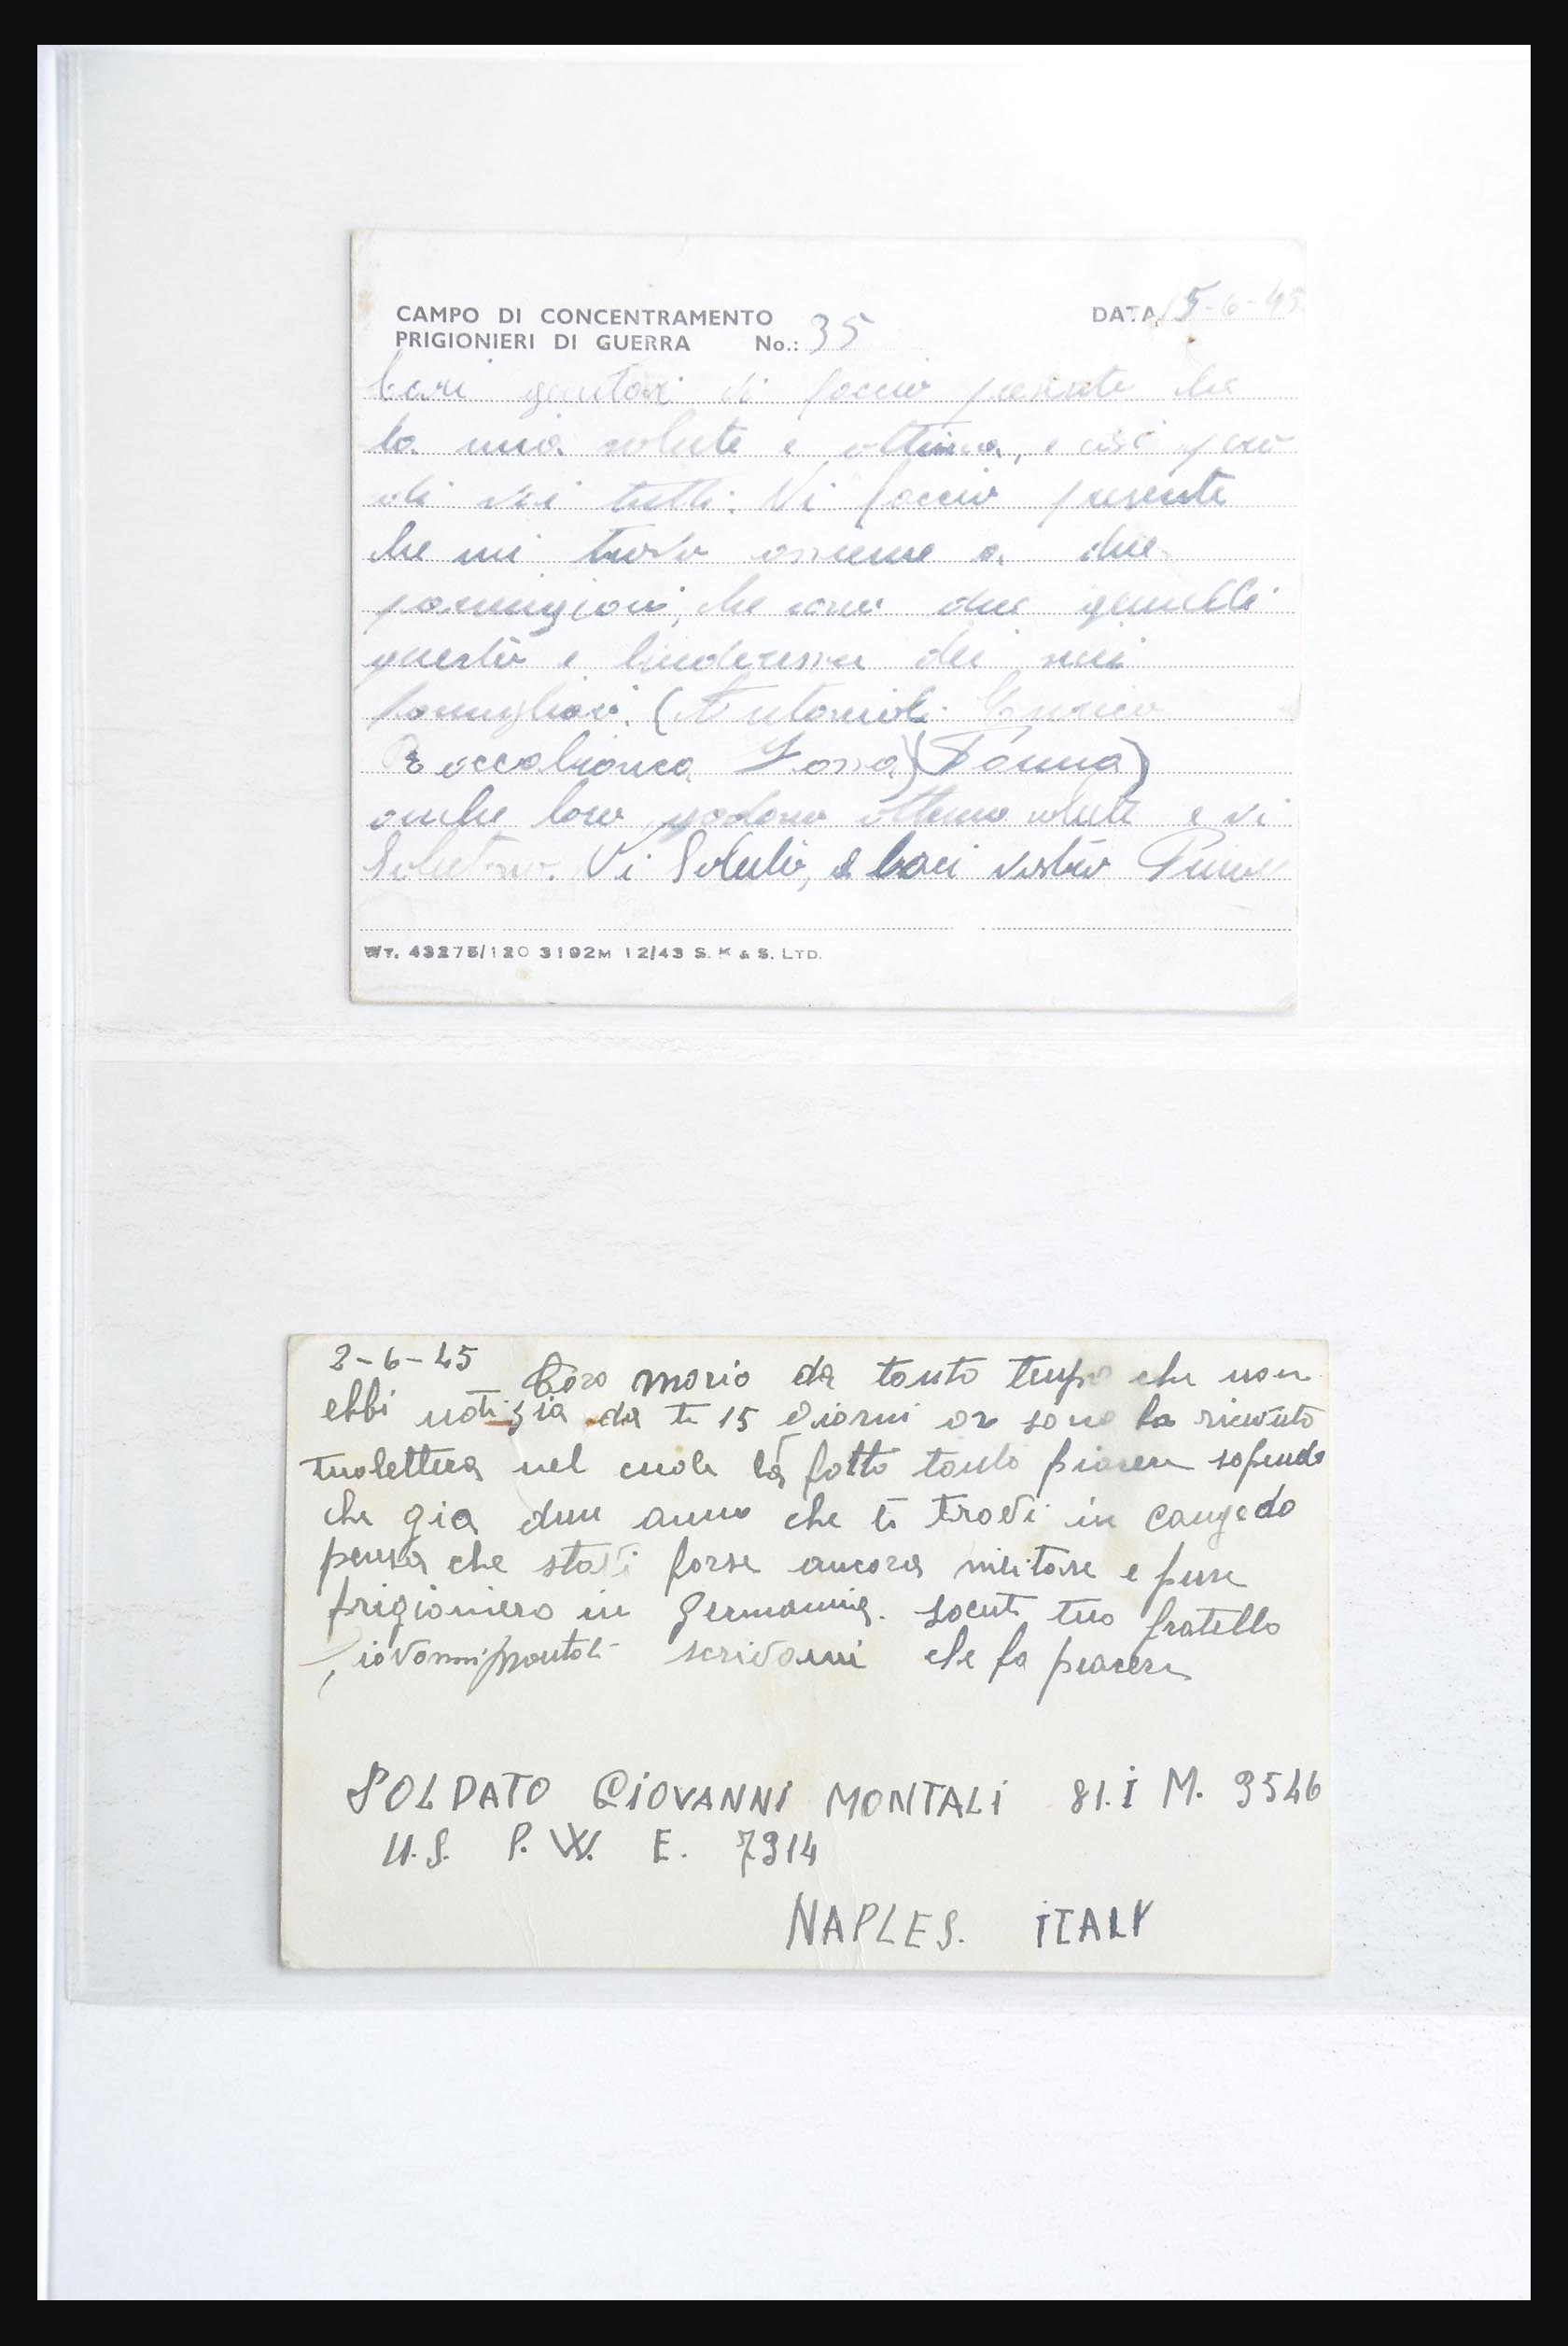 CAMPO DI CONCENTRAMENTO
PRIGIONIERI DI GUERRA No.: 35
DATA 15-6-45
Cari genitori vi faccio presente che
la mia salute e ottima, e così
di voi tutti. Vi faccio presente
che mi trovo assieme a due
parmigiani, che sono due gemelli
questo e l'inderesso dei suoi
famigliari. (Antonioli Enrico
Roccabianca Fossa) (Parma)
anche loro godono ottima salute e vi
Salutano. Vi Saluto, e baci vostro
WT. 43275/120 3192M 12/43 S. K & S. LTD.
2-6-45 Caro Mario da tanto tempo che non
ebbi notizia da te 15 Giorni or sono ha ricevuto
tuolettera nel cuole la fatto tanto piacere sapendo
che gia due anno che ti trovi in congedo
pensa che stavi forse ancora militare e pure
prigioniero in Germania. tuo fratello
iovannimontali scrivami che fa piacere
SOLDATO GIOVANNI MONTALI 81. I M. 9546
U.S. P.W. E. 7914
NAPLES. ITALY